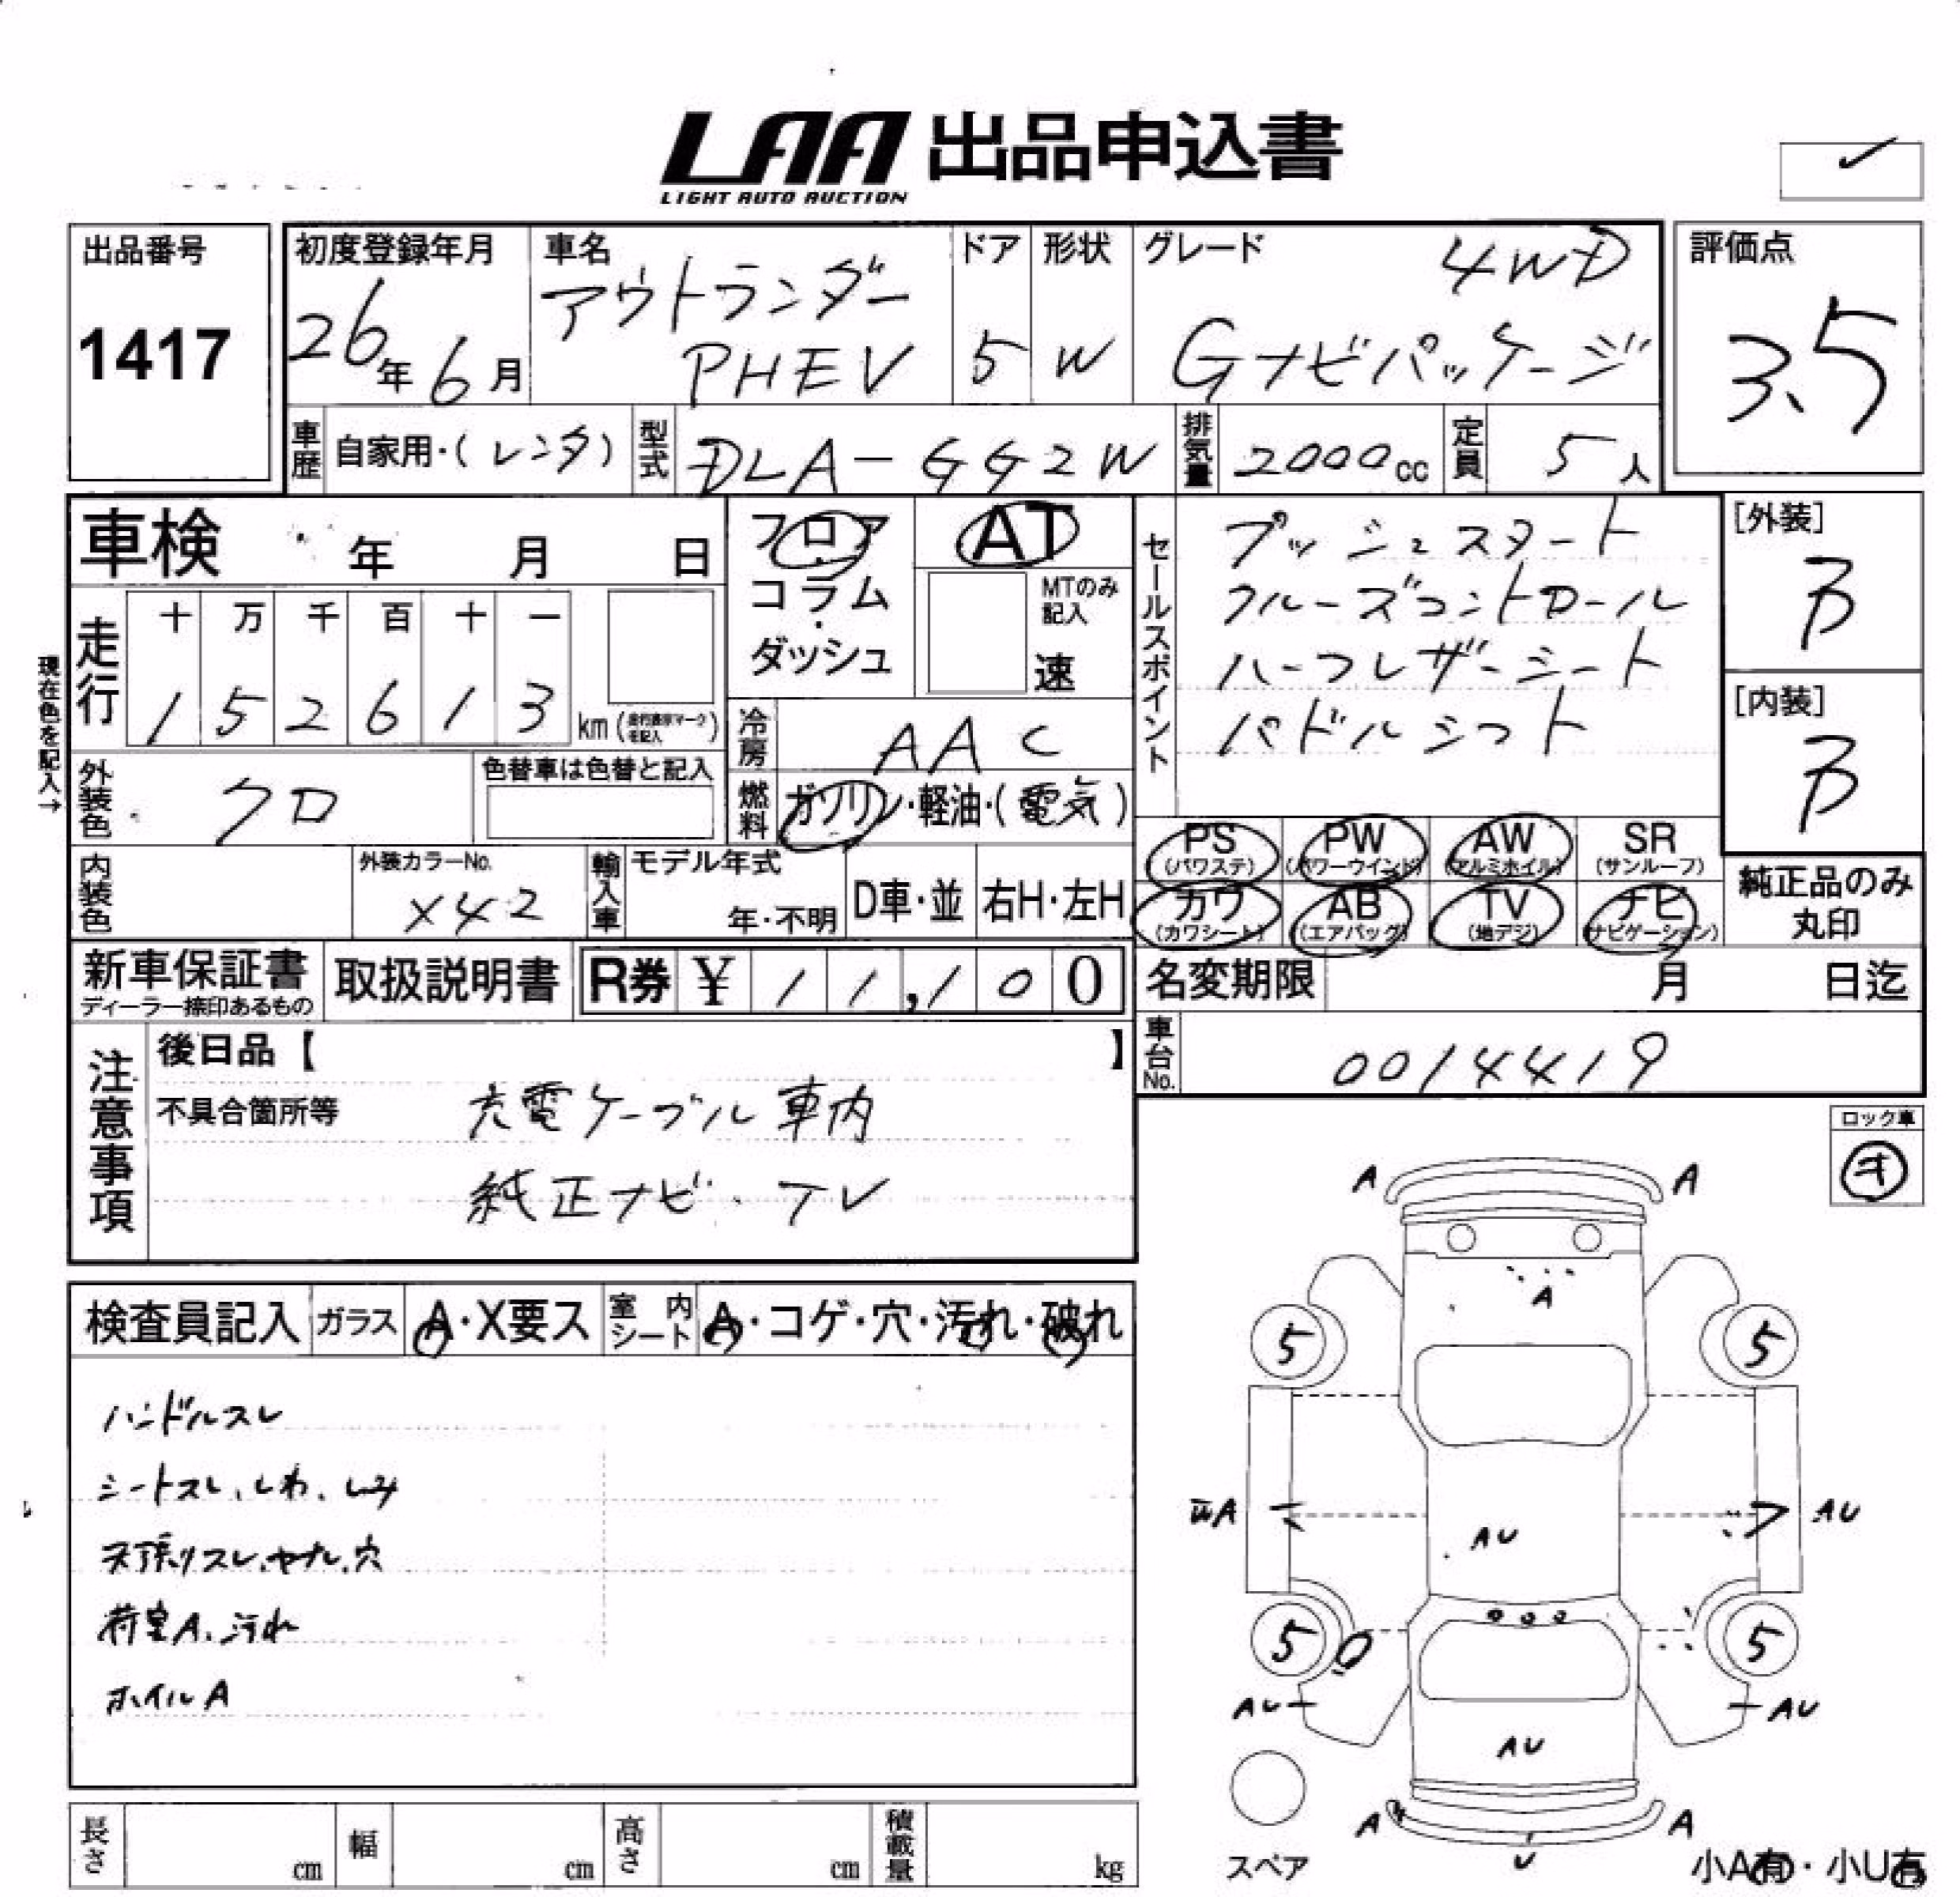 LAA 出品申込書
LIGHT AUTO AUCTION
出品番号
1417
初度登録年月
26年6月
車名
アウトランダー
PHEV
ドア
5
形状
W
グレード
4WD
Gナビパッケージ
評価点
3.5
車歴 自家用・(レンタ)
型式 DLA-GG2W
排気量 2000cc
定員 5人
車検 年 月 日
走行
十 万 千 百 十 一
1 5 2 6 1 3 km
現在色を記入→
外装色 クロ
色替車は色替と記入
内装色
外装カラーNo.
X42
フロア
・
コラム
・
ダッシュ
AT
MTのみ
記入
速
冷房 AAC
燃料 ガソリン・軽油・(電気)
輸入車
モデル年式
年・不明
D車・並
右H・左H
セールスポイント
プッシュスタート
クルーズコントロール
ハーフレザーシート
パドルシフト
[外装]
B
[内装]
B
PS
(パワステ)
PW
(パワーウインド)
AW
(アルミホイル)
SR
(サンルーフ)
カワ
(カワシート)
AB
(エアバッグ)
TV
(地デジ)
ナビ
(ナビゲーション)
純正品のみ
丸印
新車保証書
ディーラー捺印あるもの
取扱説明書
R券 ¥ 11,100
名変期限 月 日迄
車台No. 0014419
注意事項
後日品【 】
不具合箇所等
充電ケーブル車内
純正ナビ・TV
ロック車
検査員記入
ガラス A・X要ス
室内シート A・コゲ・穴・汚れ・破れ
ハンドルスレ
シートスレ、しわ、しみ
天張リスレ、ヤブレ、穴
荷室A、汚れ
ホイルA
A A
A
5 5
A AU
AU
5 5
AU AU
AU
A A
U
スペア
小A有・小U有
長さ cm
幅 cm
高さ cm
積載量 kg